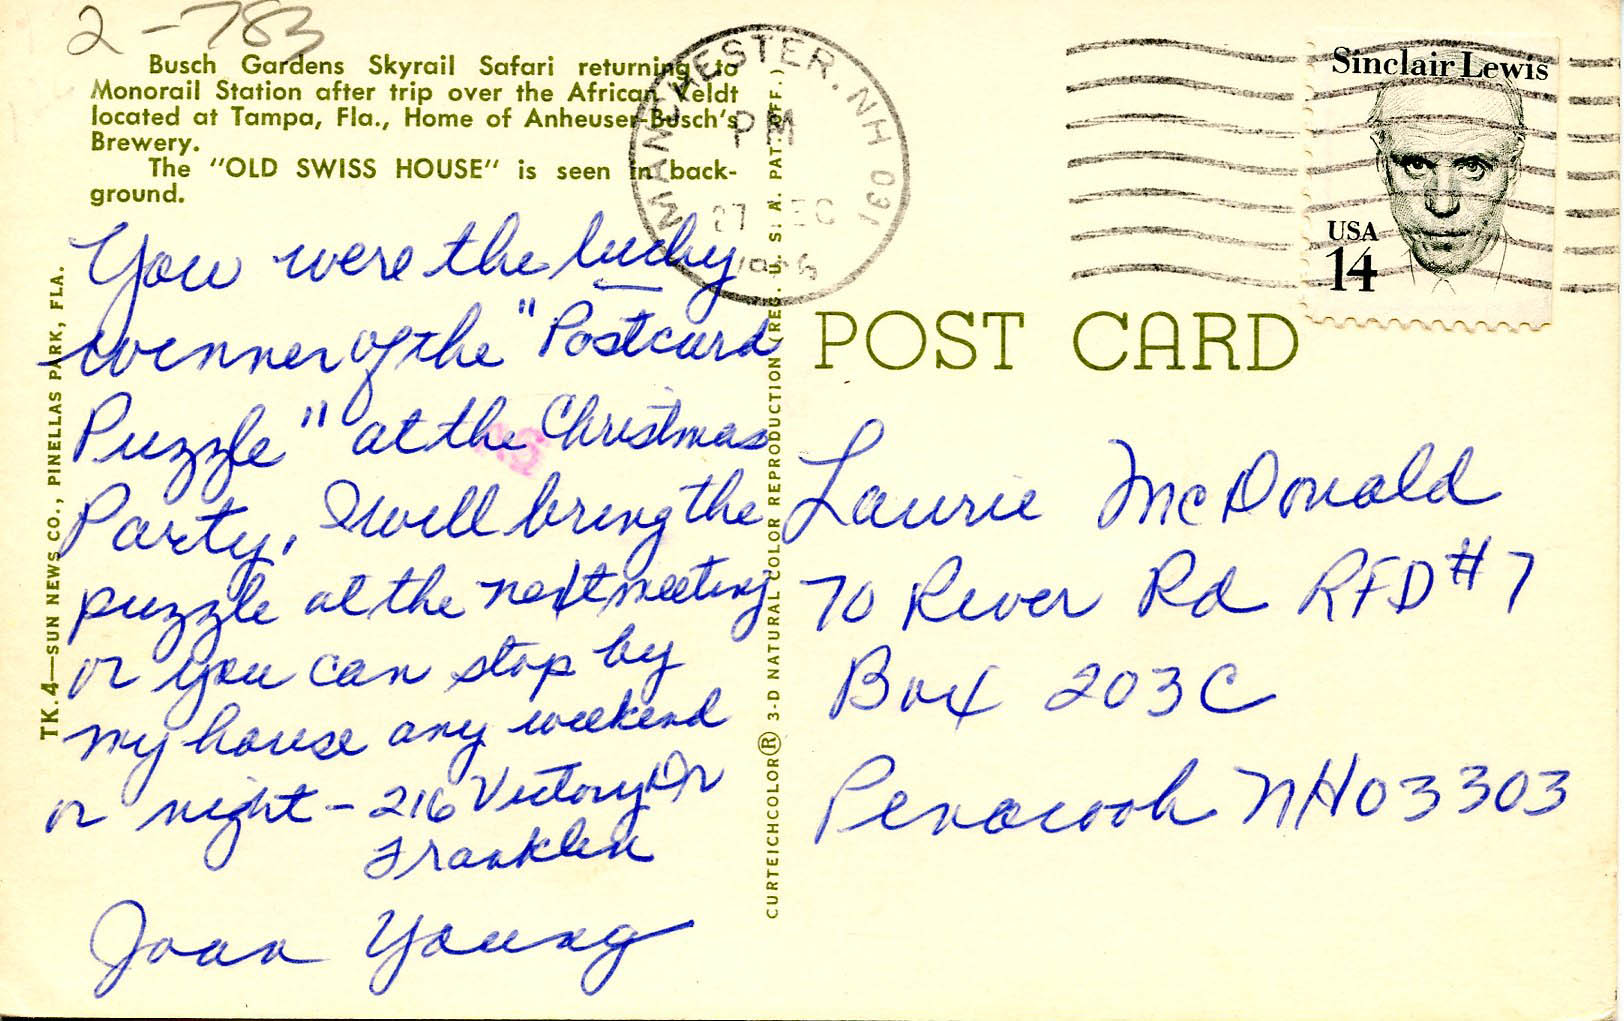 2-783
Busch Gardens Skyrail Safari returning to
Monorail Station after trip over the African Veldt
located at Tampa, Fla., Home of Anheuser-Busch's
Brewery.
The "OLD SWISS HOUSE" is seen in back-
ground.
You were the lucky
winner of the "Postcard
Puzzle" at the Christmas
Party. I will bring the
puzzle at the next meeting
or you can stop by
my house any weekend
or night - 216 Victory Dr
Franklin
Joan Young
TK.4—SUN NEWS CO., PINELLAS PARK, FLA.
CURTEICHCOLOR® 3-D NATURAL COLOR REPRODUCTION (REG. U. S. A. PAT. OFF.)
MANCHESTER, NH 031
PM
27 DEC
Sinclair Lewis
USA
14
POST CARD
Laurie McDonald
70 River Rd RFD #7
Box 203C
Penacook NH 03303